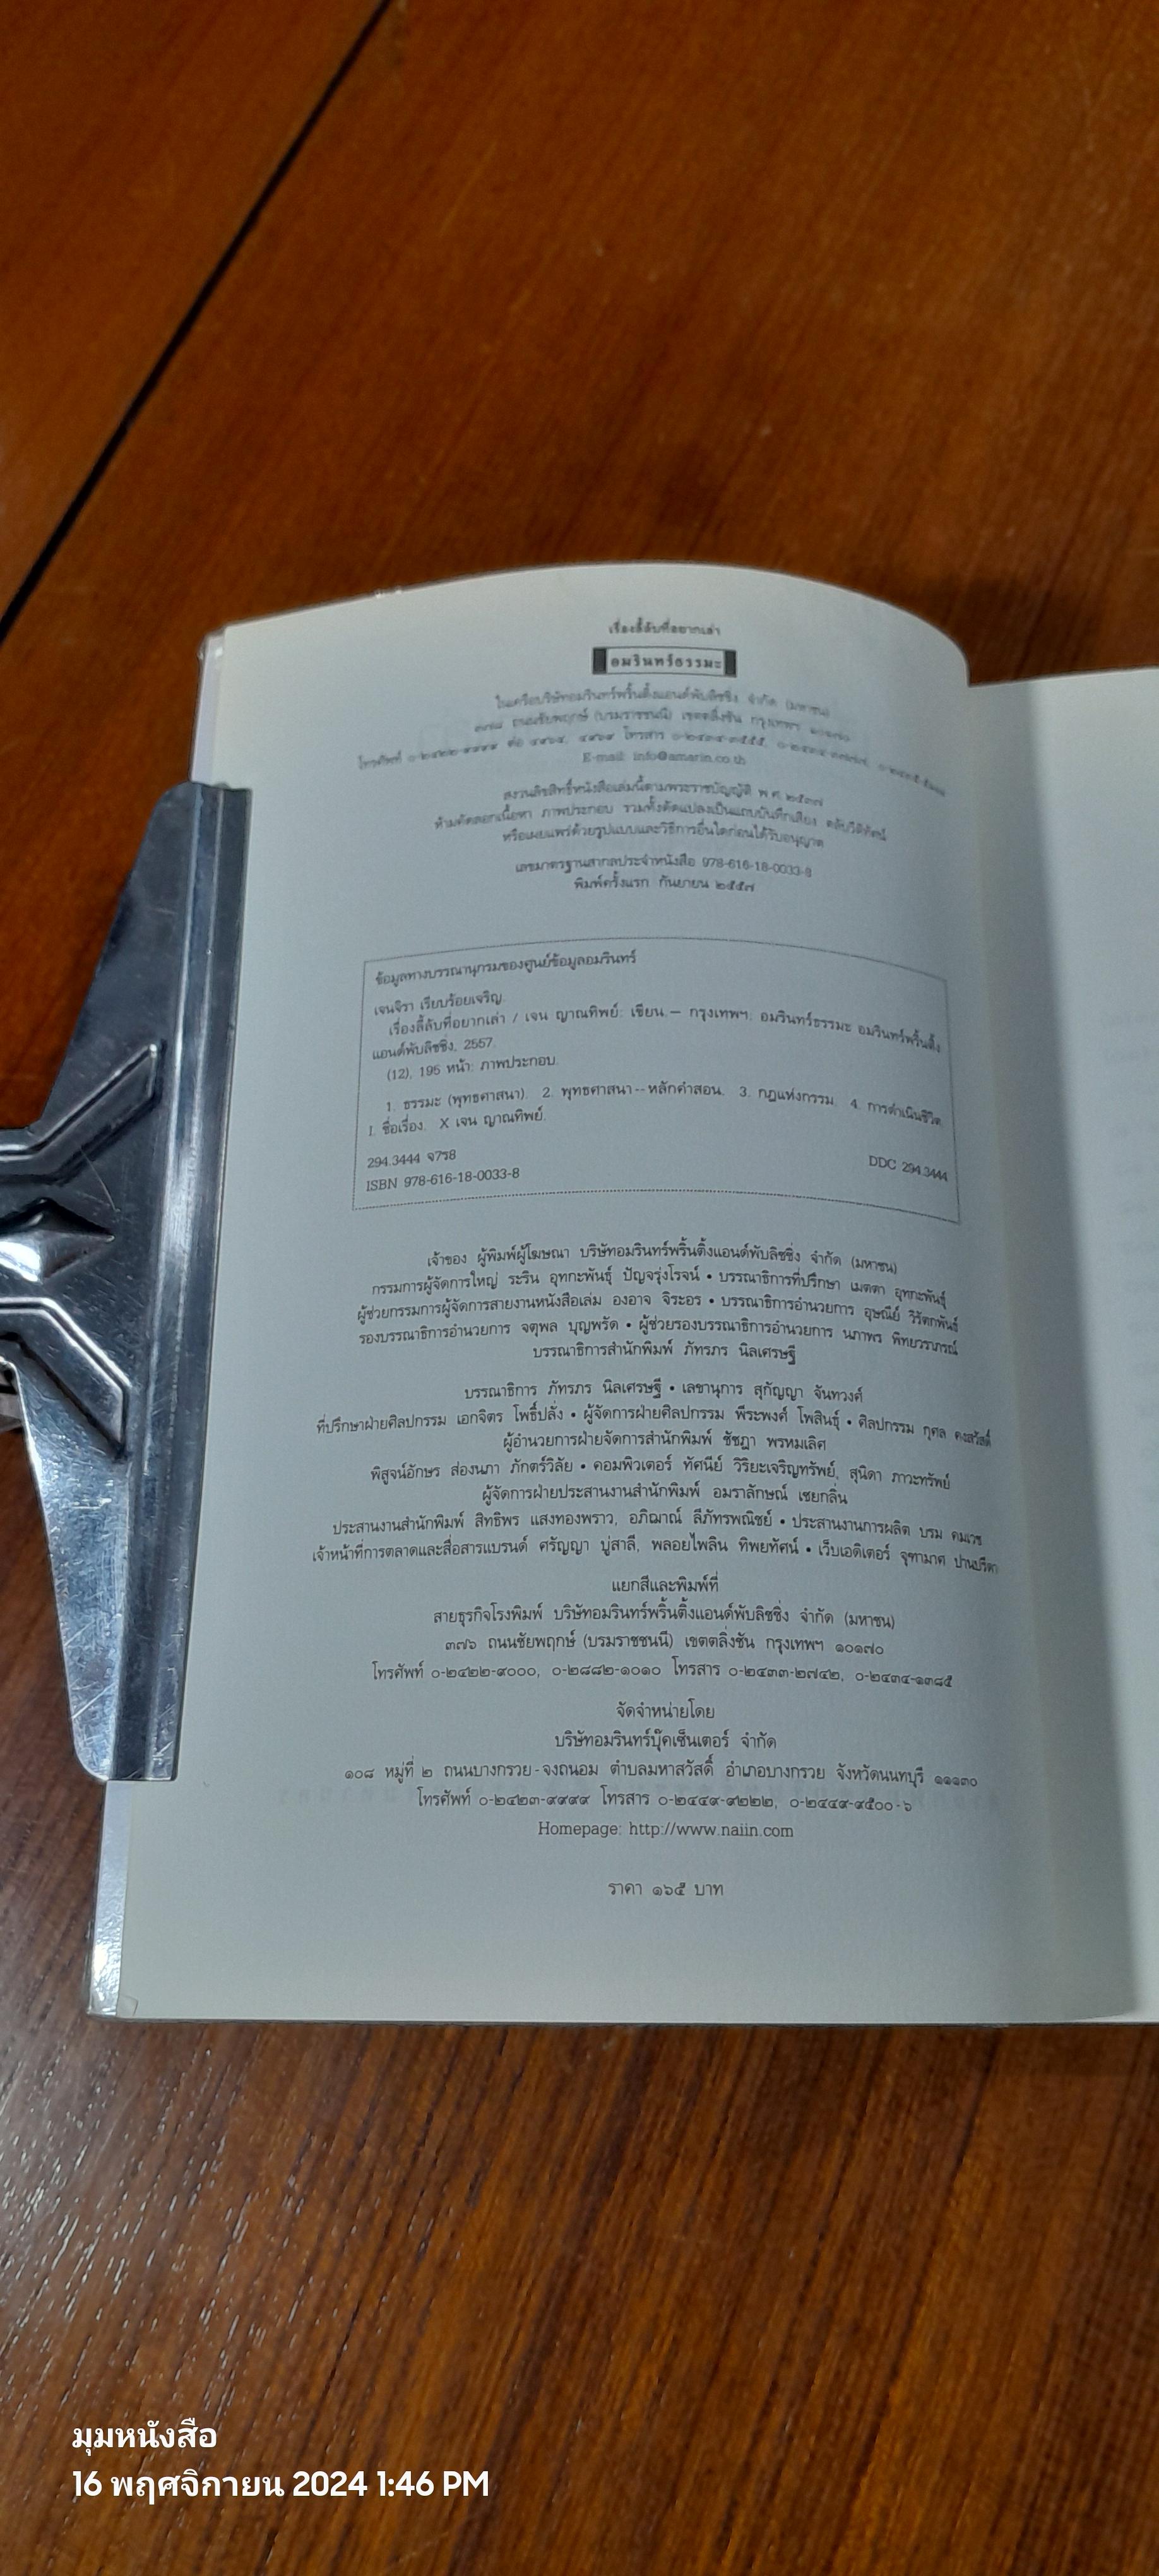 เรื่องลี้ลับที่อยากเล่า
อมรินทร์ธรรมะ
ในเครือบริษัทอมรินทร์พริ้นติ้งแอนด์พับลิชชิ่ง จำกัด (มหาชน)
๓๗๘ ถนนชัยพฤกษ์ (บรมราชชนนี) เขตตลิ่งชัน กรุงเทพฯ ๑๐๑๗๐
โทรศัพท์ ๐-๒๔๒๒-๙๙๙๙ ต่อ ๔๙๖๔, ๔๙๖๙ โทรสาร
E-mail: info@amarin.co.th
สงวนลิขสิทธิ์หนังสือเล่มนี้ตามพระราชบัญญัติ พ.ศ. ๒๕๓๗
ห้ามคัดลอกเนื้อหา ภาพประกอบ รวมทั้งดัดแปลงเป็นแถบบันทึกเสียง ตลับวีดิทัศน์
หรือเผยแพร่ด้วยรูปแบบและวิธีการอื่นใดก่อนได้รับอนุญาต
เลขมาตรฐานสากลประจำหนังสือ 978-616-18-0033-8
พิมพ์ครั้งแรก กันยายน ๒๕๕๗
ข้อมูลทางบรรณานุกรมของศูนย์ข้อมูลอมรินทร์
เจนจิรา เรียบร้อยเจริญ.
เรื่องลี้ลับที่อยากเล่า / เจน ญาณทิพย์: เขียน.— กรุงเทพฯ: อมรินทร์ธรรมะ อมรินทร์พริ้นติ้ง
แอนด์พับลิชชิ่ง, 2557.
(12), 195 หน้า: ภาพประกอบ.
1. ธรรมะ (พุทธศาสนา). 2. พุทธศาสนา--หลักคำสอน. 3. กฎแห่งกรรม. 4. การดำเนินชีวิต
I. ชื่อเรื่อง. X เจน ญาณทิพย์.
294.3444 จ7ร8
DDC 294.3444
ISBN 978-616-18-0033-8
เจ้าของ ผู้พิมพ์ผู้โฆษณา บริษัทอมรินทร์พริ้นติ้งแอนด์พับลิชชิ่ง จำกัด (มหาชน)
กรรมการผู้จัดการใหญ่ ระริน อุทกะพันธุ์ ปัญจรุ่งโรจน์ • บรรณาธิการที่ปรึกษา เมตตา อุทกะพันธุ์
ผู้ช่วยกรรมการผู้จัดการสายงานหนังสือเล่ม องอาจ จิระอร • บรรณาธิการอำนวยการ อุษณีย์ วิรัตกพันธ์
รองบรรณาธิการอำนวยการ จตุพล บุญพรัด • ผู้ช่วยรองบรรณาธิการอำนวยการ นภาพร พิทยวราภรณ์
บรรณาธิการสำนักพิมพ์ ภัทรภร นิลเศรษฐี
บรรณาธิการ ภัทรภร นิลเศรษฐี • เลขานุการ สุกัญญา จันทวงศ์
ที่ปรึกษาฝ่ายศิลปกรรม เอกจิตร โพธิ์ปลั่ง • ผู้จัดการฝ่ายศิลปกรรม พีระพงศ์ โพสินธุ์ • ศิลปกรรม กุศล คงสวัสดิ์
ผู้อำนวยการฝ่ายจัดการสำนักพิมพ์ ชัชฎา พรหมเลิศ
พิสูจน์อักษร ส่องนภา ภักตร์วิลัย • คอมพิวเตอร์ ทัศนีย์ วิริยะเจริญทรัพย์, สุนิดา ภาวะทรัพย์
ผู้จัดการฝ่ายประสานงานสำนักพิมพ์ อมราลักษณ์ เชยกลิ่น
ประสานงานสำนักพิมพ์ สิทธิพร แสงทองพราว, อภิฌาณ์ ลีภัทรพณิชย์ • ประสานงานการผลิต บรม คมเวช
เจ้าหน้าที่การตลาดและสื่อสารแบรนด์ ศรัญญา ปู่สาลี, พลอยไพลิน ทิพยทัศน์ • เว็บเอดิเตอร์ จุฑามาศ ปานปรีดา
แยกสีและพิมพ์ที่
สายธุรกิจโรงพิมพ์ บริษัทอมรินทร์พริ้นติ้งแอนด์พับลิชชิ่ง จำกัด (มหาชน)
๓๗๖ ถนนชัยพฤกษ์ (บรมราชชนนี) เขตตลิ่งชัน กรุงเทพฯ ๑๐๑๗๐
โทรศัพท์ ๐-๒๔๒๒-๙๐๐๐, ๐-๒๘๘๒-๑๐๑๐ โทรสาร ๐-๒๔๓๓-๒๗๔๒, ๐-๒๔๓๔-๑๓๘๕
จัดจำหน่ายโดย
บริษัทอมรินทร์บุ๊คเซ็นเตอร์ จำกัด
๑๐๘ หมู่ที่ ๒ ถนนบางกรวย-จงถนอม ตำบลมหาสวัสดิ์ อำเภอบางกรวย จังหวัดนนทบุรี ๑๑๑๓๐
โทรศัพท์ ๐-๒๔๒๓-๙๙๙๙ โทรสาร ๐-๒๔๔๙-๙๒๒๒, ๐-๒๔๔๙-๙๕๐๐-๖
Homepage: http://www.naiin.com
ราคา ๑๖๕ บาท
มุมหนังสือ
16 พฤศจิกายน 2024 1:46 PM